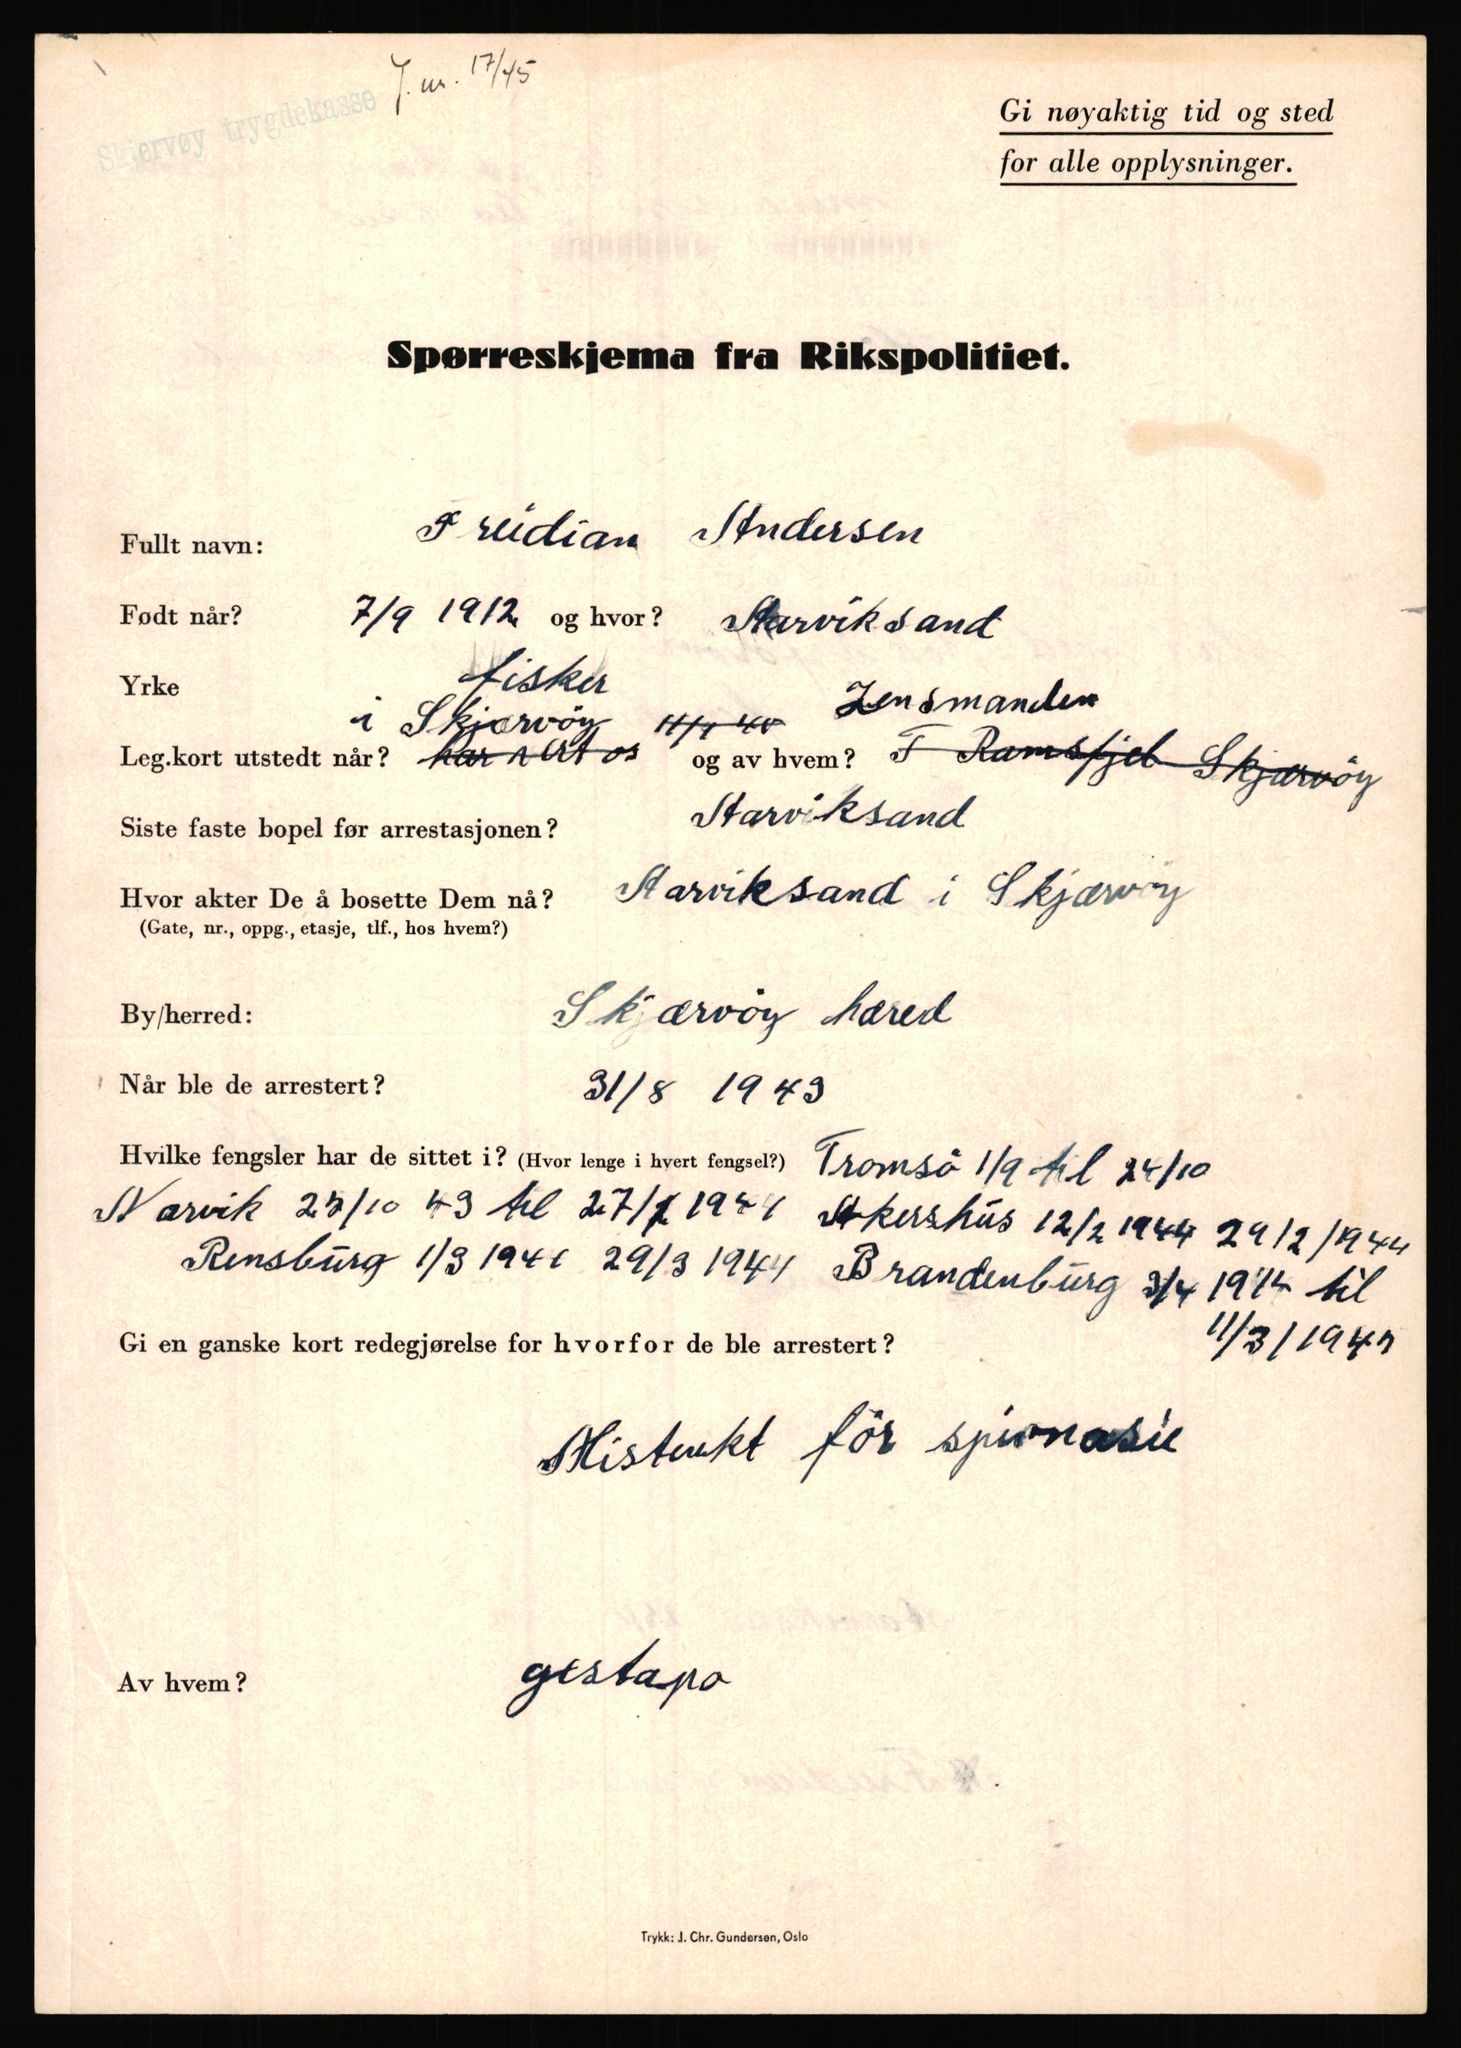 Skjervøy trygdekasse
J. nr. 17/45
Gi nøyaktig tid og sted
for alle opplysninger.
Spørreskjema fra Rikspolitiet.
Fullt navn: Freidian Andersen
Født når? 7/9 1912 og hvor? Arviksand
Yrke fisker
i Skjærvöy 11/1 40 Lensmanden
Leg.kort utstedt når? og av hvem? F Ramsfjel Skjærvöy
Siste faste bopel før arrestasjonen? Arviksand
Hvor akter De å bosette Dem nå? Arviksand i Skjærvöy
(Gate, nr., oppg., etasje, tlf., hos hvem?)
By/herred: Skjærvöy hæred
Når ble de arrestert? 31/8 1943
Hvilke fengsler har de sittet i? (Hvor lenge i hvert fengsel?) Tromsö 1/9 til 24/10
Narvik 25/10 43 til 27/1 1944 Akershus 12/2 1944 29/2/1944
Rensburg 1/3 1944 29/3 1944 Brandenburg 3/4 1944 til
Gi en ganske kort redegjørelse for hvorfor de ble arrestert? 11/3/1945
Mistenkt för spionasie
Av hvem? gestapo
Trykk: J. Chr. Gundersen, Oslo